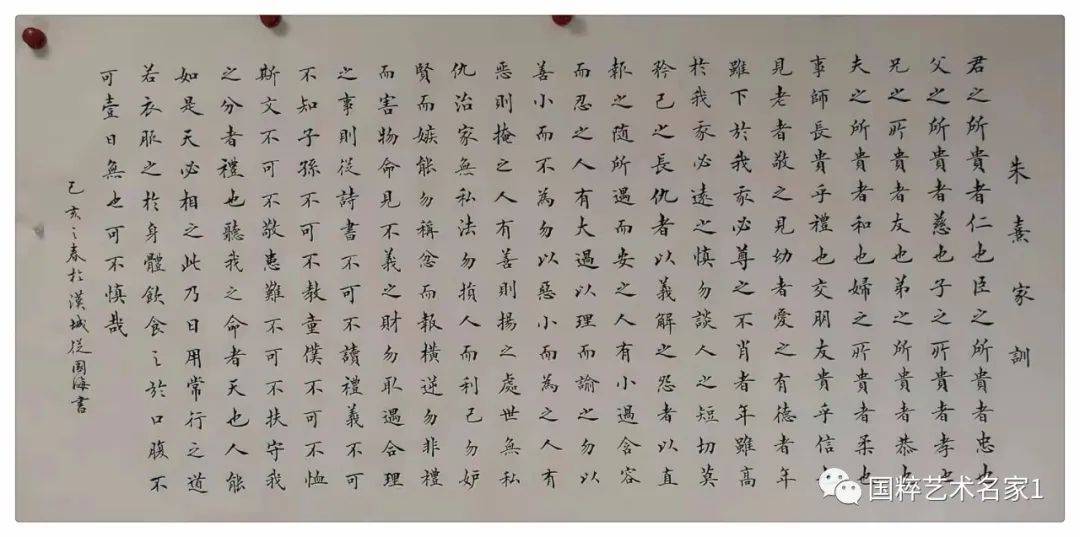 朱熹家訓
君之所貴者仁也臣之所貴者忠也
父之所貴者慈也子之所貴者孝也
兄之所貴者友也弟之所貴者恭也
夫之所貴者和也婦之所貴者柔也
事師長貴乎禮也交朋友貴乎信也
見老者敬之見幼者愛之有德者年
雖下於我我必尊之不肖者年雖高
於我我必遠之慎勿談人之短切莫
矜己之長仇者以義解之怨者以直
報之随所遇而安之人有小過含容
而忍之人有大過以理而諭之勿以
善小而不為勿以惡小而為之人有
惡則掩之人有善則揚之處世無私
仇治家無私法勿損人而利己勿妒
賢而嫉能勿稱忿而報橫逆勿非禮
而害物命見不義之財勿取遇合理
之事則從詩書不可不讀禮義不可
不知子孫不可不教童僕不可不恤
斯文不可不敬患難不可不扶守我
之分者禮也聽我之命者天也人能
如是天必相之此乃日用常行之道
若衣服之於身體飲食之於口腹不
可壹日無也可不慎哉
己亥之春於漢城從國海書
国粹艺术名家1